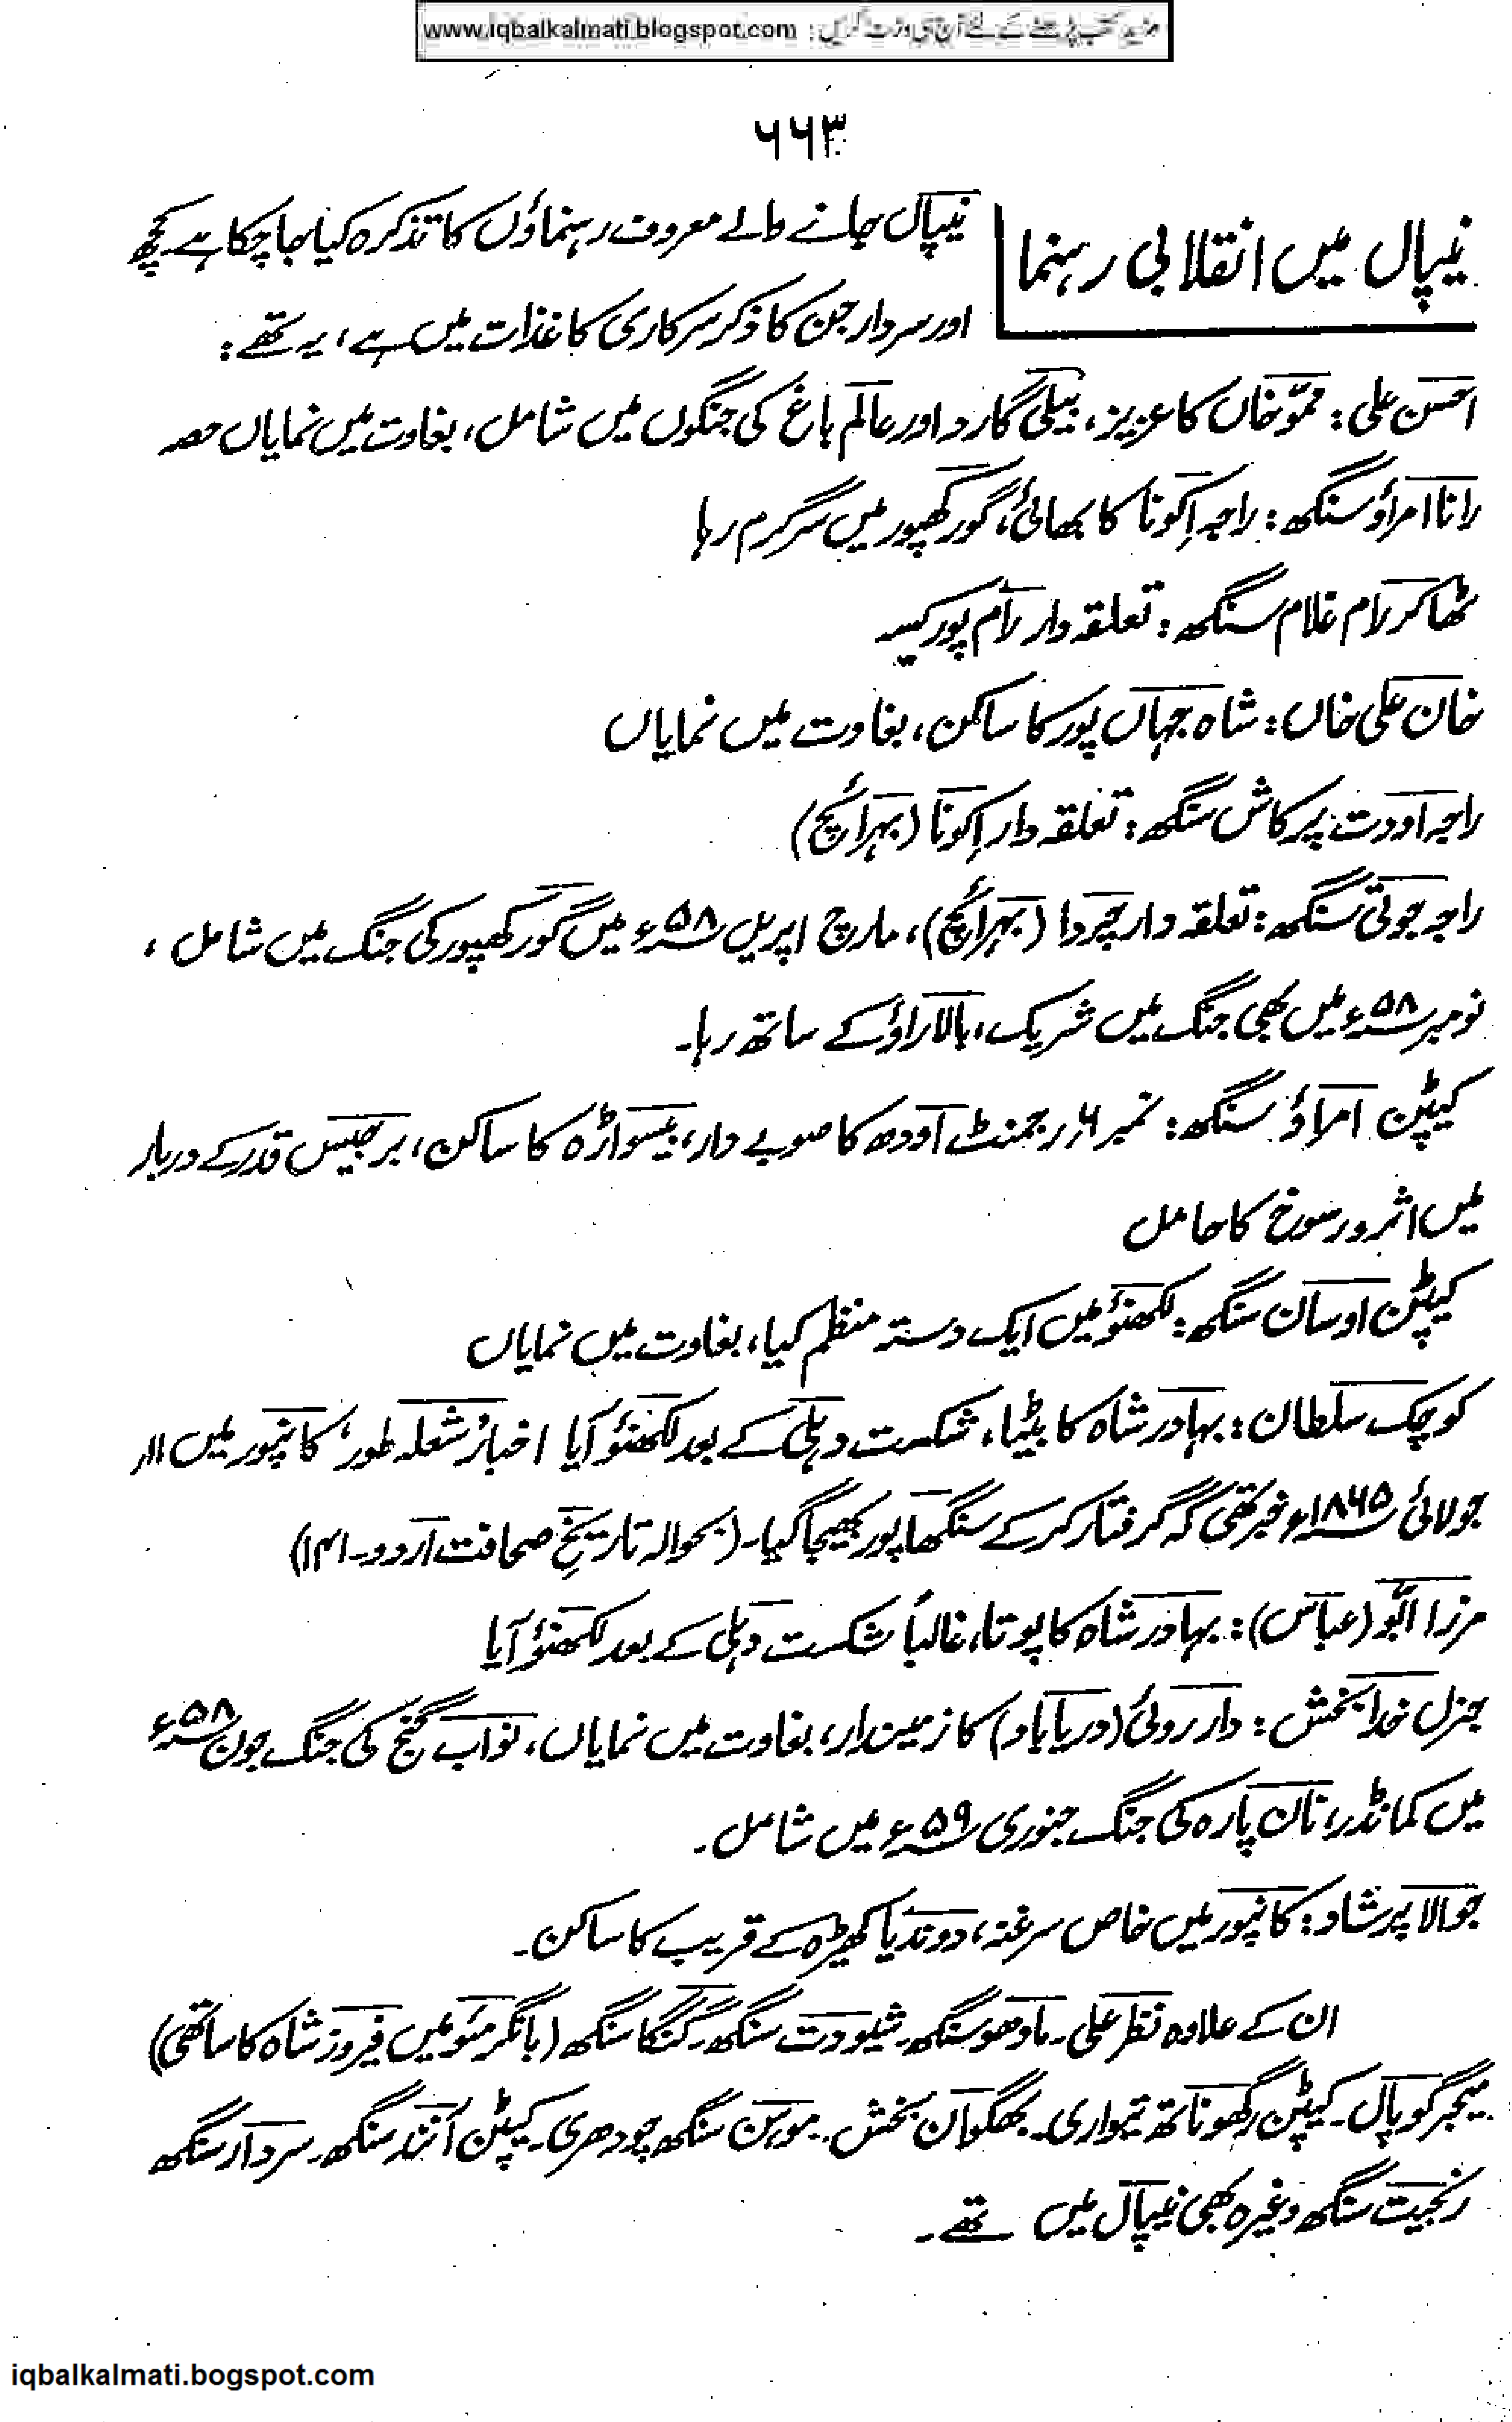 مزید کتب پڑھنے کے لئے آج ہی وزٹ کریں : www.iqbalkalmati.blogspot.com
۶۶۳
نیپال میں انقلابی رہنما
نیپال جانے والے معروف رہنماؤں کا تذکرہ کیا جا چکا ہے۔ کچھ
اور سردار جن کا ذکر سرکاری کاغذات میں ہے، یہ تھے :
احسن علی : ممّو خاں کا عزیز، بیلی گارد اور عالم باغ کی جنگوں میں شامل، بغاوت میں نمایاں حصہ
رانا امراؤ سنگھ : راجہ اِکونا کا بھائی، گورکھپور میں سرگرم رہا
ٹھاکر رام غلام سنگھ : تعلقہ دار رام پور کسیہ
خان علی خاں : شاہ جہاں پور کا ساکن، بغاوت میں نمایاں
راجہ اودت پرکاش سنگھ : تعلقہ دار اِکونا (بہرائچ)
راجہ جوتی سنگھ : تعلقہ دار چردا (بہرائچ)، مارچ اپریل ۵۸ء میں گورکھپور کی جنگ میں شامل ،
نومبر ۵۸ء میں بھی جنگ میں شریک، بالا راؤ کے ساتھ رہا۔
کیپٹن امراؤ سنگھ : نمبر ۶ رجمنٹ اودھ کا صوبے دار، بیسواڑہ کا ساکن، برجیس قدر کے دربار
میں اثر و رسوخ کا حامل
کیپٹن اوسان سنگھ : لکھنؤ میں ایک دستہ منظم کیا، بغاوت میں نمایاں
کوچک سلطان : بہادر شاہ کا بیٹا، شکست دہلی کے بعد لکھنؤ آیا اخبار 'شعلہ طور' کانپور میں ۱۱ر
جولائی ۱۸۶۵ء خبر تھی کہ گرفتار کر کے سنگھاپور بھیجا گیا۔ (بحوالہ تاریخِ صحافت اردو۔ ۱۴۱)
مرزا ابّو (عباس) : بہادر شاہ کا پوتا، غالباً شکست دہلی کے بعد لکھنؤ آیا
جنرل خدا بخش : دار روئی (دریاباد) کا زمیندار، بغاوت میں نمایاں، نواب گنج کی جنگ جون ۵۸ء
میں کمانڈر، نان پارہ کی جنگ جنوری ۵۹ء میں شامل۔
جوالا پرشاد : کانپور میں خاص سرغنہ، دوندیا کھیڑہ کے قریب کا ساکن۔
ان کے علاوہ نظر علی۔ مادھو سنگھ۔ شیو دت سنگھ۔ گنگا سنگھ (بانگر مئو میں فیروز شاہ کا ساتھی)
میجر گوپال۔ کیپٹن رگھوناتھ تیواری۔ بھگوان بخش۔ موہن سنگھ چودھری۔ کیپٹن آنند سنگھ۔ سردار سنگھ
رنجیت سنگھ وغیرہ بھی نیپال میں تھے۔
iqbalkalmati.bogspot.com